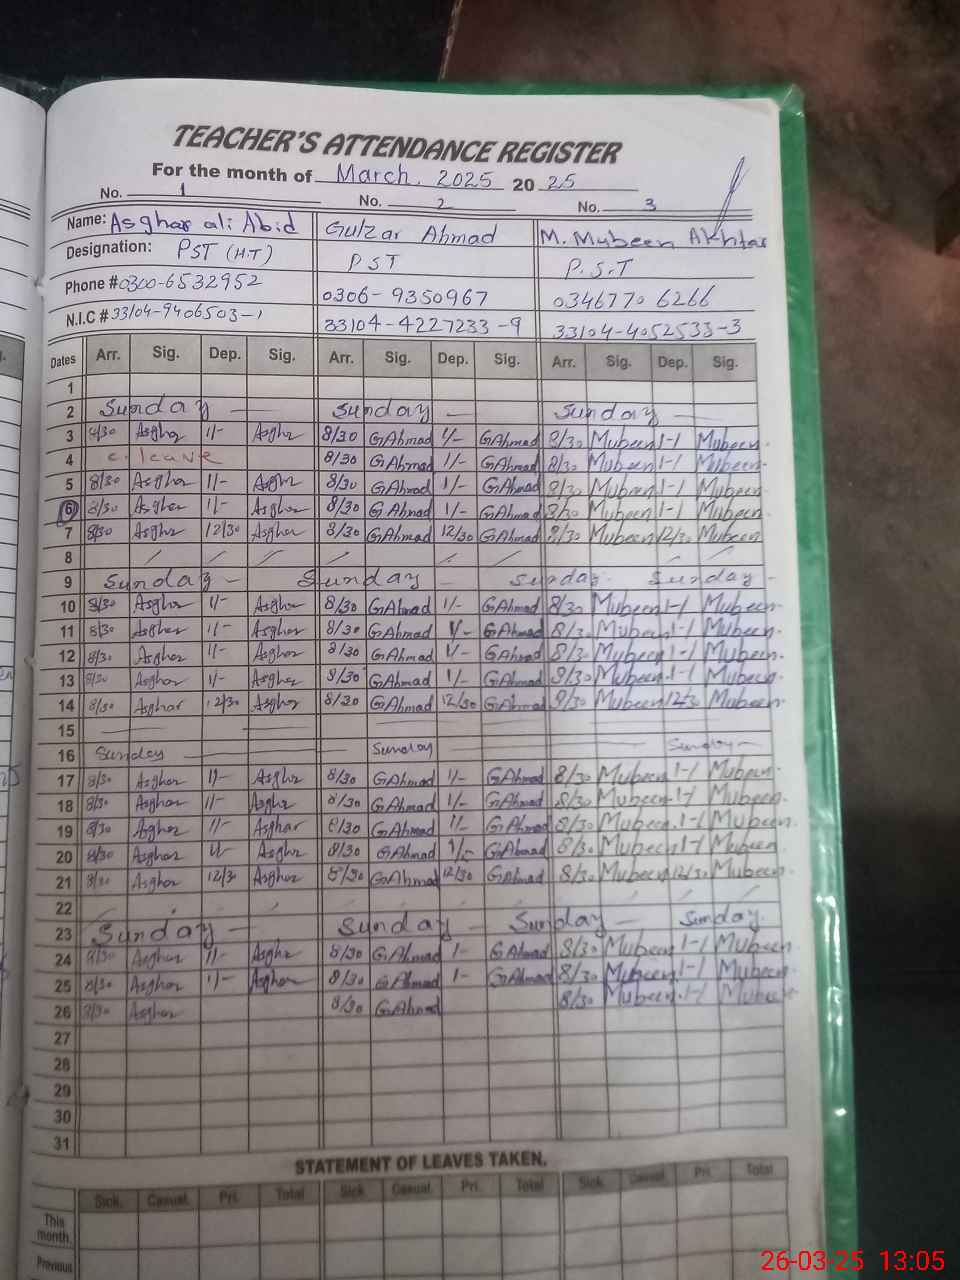 TEACHER'S ATTENDANCE REGISTER
For the month of March, 2025 20 25
No. 1 No. 2 No. 3
Name: Asghar ali Abid Gulzar Ahmad M. Mubeen Akhtar
Designation: PST (H.T) PST P.S.T
Phone # 0300-6532952 0306-9350967 0346770 6266
N.I.C # 33104-9406503-1 33104-4227233-9 33104-4052533-3
Dates Arr. Sig. Dep. Sig. Arr. Sig. Dep. Sig. Arr. Sig. Dep. Sig.
1
2 Sunday — Sunday — Sunday —
3 8/30 Asghar 1/- Asghar 8/30 GAhmad 1/- GAhmad 8/30 Mubeen 1-1 Mubeen
4 c. leave 8/30 GAhmad 1/- GAhmad 8/30 Mubeen 1-1 Mubeen
5 8/30 Asghar 1/- Asghar 8/30 GAhmad 1/- GAhmad 8/30 Mubeen 1-1 Mubeen
6 8/30 Asghar 1/- Asghar 8/30 GAhmad 1/- GAhmad 8/30 Mubeen 1-1 Mubeen
7 8/30 Asghar 12/30 Asghar 8/30 GAhmad 12/30 GAhmad 8/30 Mubeen 12/30 Mubeen
8
9 Sunday — Sunday — Sunday Sunday —
10 8/30 Asghar 1/- Asghar 8/30 GAhmad 1/- GAhmad 8/30 Mubeen 1-1 Mubeen
11 8/30 Asghar 1/- Asghar 8/30 GAhmad 1/- GAhmad 8/30 Mubeen 1-1 Mubeen
12 8/30 Asghar 1/- Asghar 8/30 GAhmad 1/- GAhmad 8/30 Mubeen 1-1 Mubeen
13 8/30 Asghar 1/- Asghar 8/30 GAhmad 1/- GAhmad 8/30 Mubeen 1-1 Mubeen
14 8/30 Asghar 12/30 Asghar 8/30 GAhmad 12/30 GAhmad 8/30 Mubeen 12/30 Mubeen
15
16 Sunday Sunday Sunday
17 8/30 Asghar 1/- Asghar 8/30 GAhmad 1/- GAhmad 8/30 Mubeen 1-1 Mubeen
18 8/30 Asghar 1/- Asghar 8/30 GAhmad 1/- GAhmad 8/30 Mubeen 1-1 Mubeen
19 8/30 Asghar 1/- Asghar 8/30 GAhmad 1/- GAhmad 8/30 Mubeen 1-1 Mubeen
20 8/30 Asghar 1/- Asghar 8/30 GAhmad 1/- GAhmad 8/30 Mubeen 1-1 Mubeen
21 8/30 Asghar 12/3 Asghar 8/30 GAhmad 12/30 GAhmad 8/30 Mubeen 12/30 Mubeen
22
23 Sunday — Sunday — Sunday — Sunday
24 8/30 Asghar 1/- Asghar 8/30 GAhmad 1- GAhmad 8/30 Mubeen 1-1 Mubeen
25 8/30 Asghar 1/- Asghar 8/30 GAhmad 1- GAhmad 8/30 Mubeen 1-1 Mubeen
26 8/30 Asghar 8/30 GAhmad 8/30 Mubeen 1-1 Mubeen
27
28
29
30
31
STATEMENT OF LEAVES TAKEN.
Sick. Casual. Pri. Total Sick Casual. Pri. Total Sick. Casual. Pri. Total
This month.
Previous
26-03-25 13:05